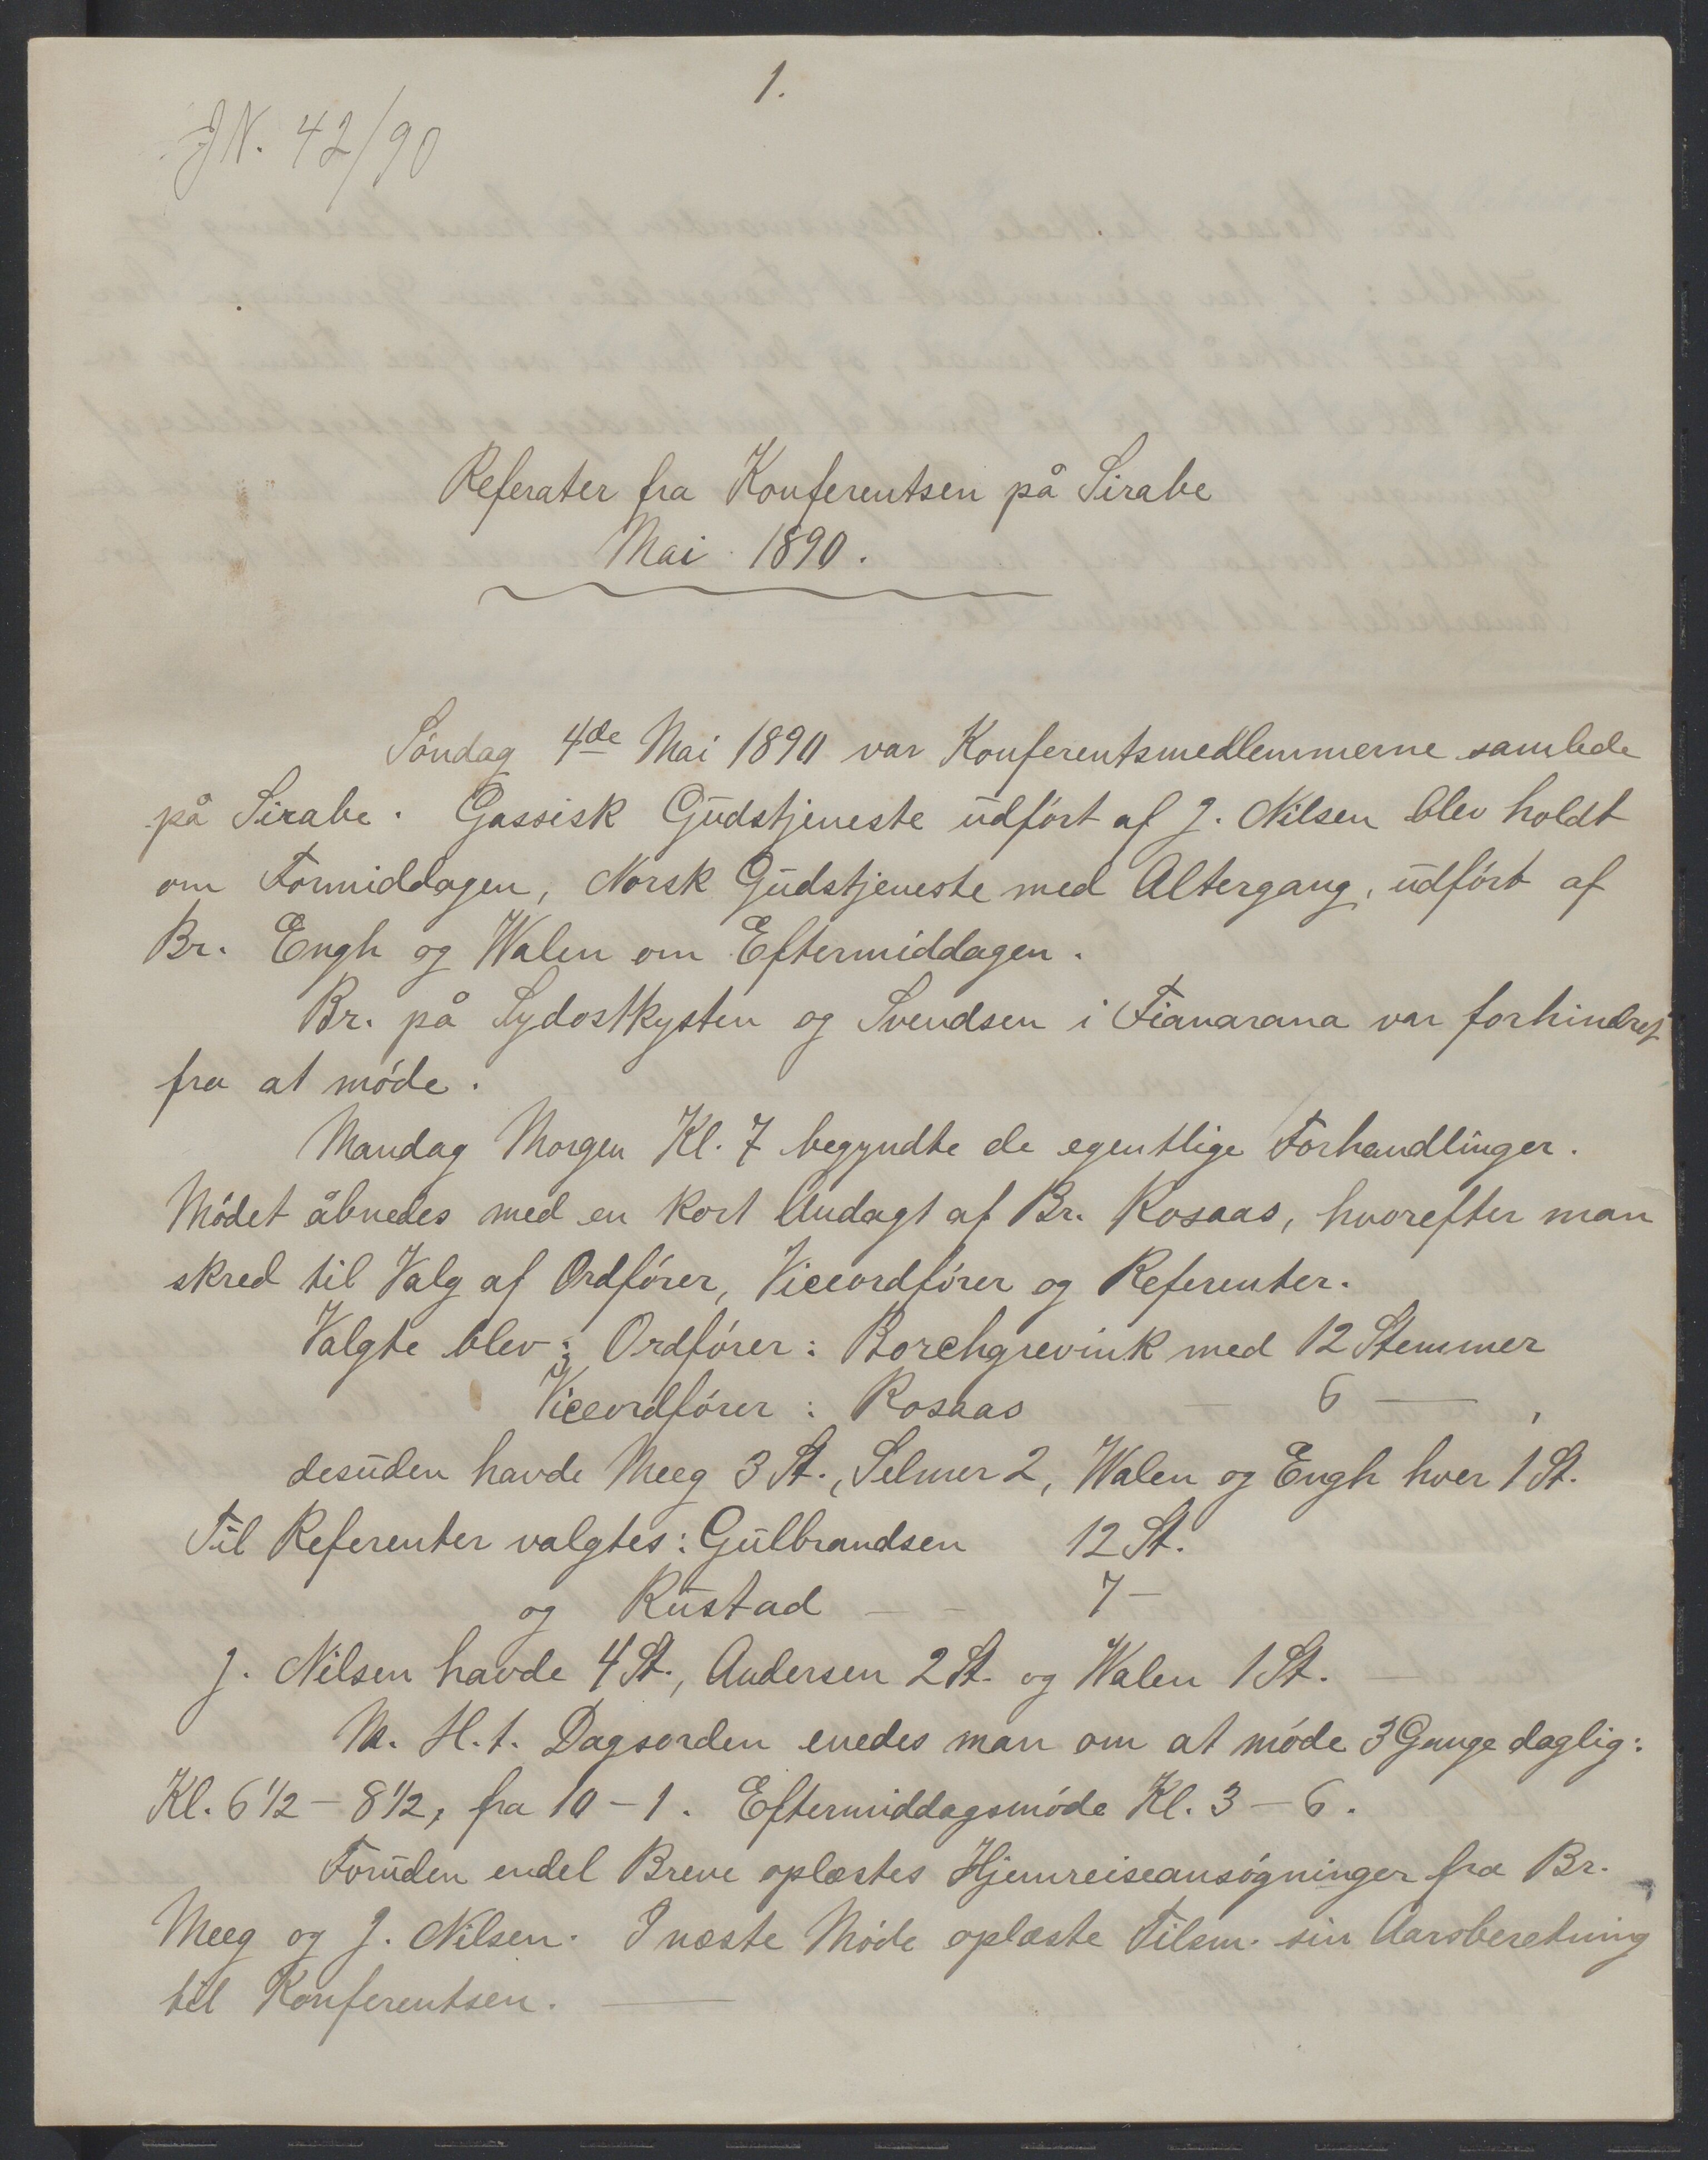 1.
JN. 42/90
Referater fra Konferentsen på Sirabe
Mai 1890.
Söndag 4de Mai 1890 var Konferentsmedlemmerne samlede
på Sirabe. Gassisk Gudstjeneste udfört af J. Nilsen blev holdt
om Formiddagen, Norsk Gudstjeneste med Altergang, udfört af
Br. Engh og Walen om Eftermiddagen.
Br. på Sydostkysten og Svendsen i Fianarana var forhindret
fra at möde.
Mandag Morgen Kl. 7 begyndte de egentlige Forhandlinger.
Mödet åbnedes med en kort Andagt af Br. Rosaas, hvorefter man
skred til Valg af Ordförer, Viceordförer og Referenter.
Valgte blev: Ordförer: Borchgrevink med 12 Stemmer
Viceordförer: Rosaas — 6 — ,
desuden havde Meeg 3 St., Selmer 2, Walen og Engh hver 1 St.
Til Referenter valgtes: Gulbrandsen 12 St.
og Rustad — — 7 —
J. Nilsen havde 4 St., Andersen 2 St. og Walen 1 St. —
M. H. t. Dagsorden enedes man om at möde 3 Gange daglig:
Kl. 6 1/2 — 8 1/2, fra 10 — 1. Eftermiddagsmöde Kl. 3 — 6.
Foruden endel Breve oplæstes Hjemreiseansögninger fra Br.
Meeg og J. Nilsen. I næste Möde oplæste Tilsm. sin Aarsberetning
til Konferentsen. —